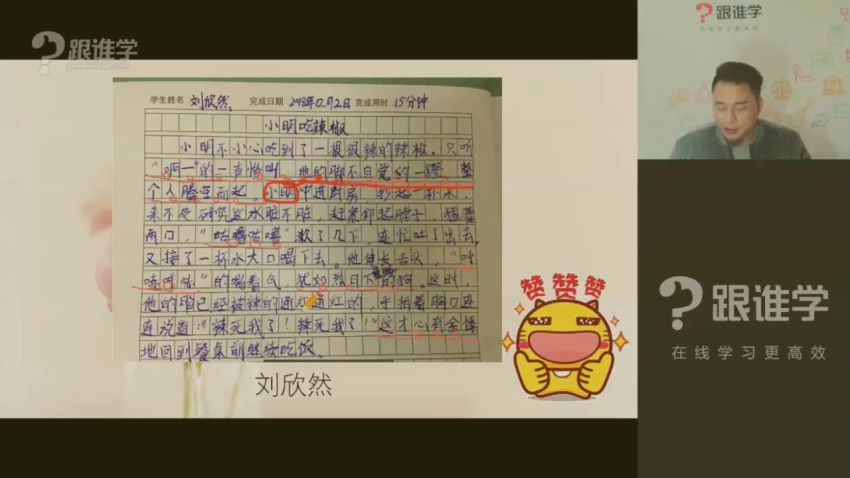 跟谁学
genshuixue.com
学生姓名 刘欣然 完成日期 2018年12月2日 完成用时 15分钟
小明吃辣椒
小明不小心吃到了一根很辣的辣椒。只听
“啊一”的一声惨叫,他的脚不自觉的一蹬,整
个人腾空而起。小明冲进厨房,抄起一杯水,
来不及研究这水脏不脏,赶紧仰起脖子,猛灌
两口,“咕噜咕噜”漱了几下,连忙吐了出去,
又接了一杯水大口喝下去。他伸长舌头,“呼
哧哧哧”的喘着气,犹如烈日下的狗。这时,
他的脸已经被辣的通红通红的,手拍着胸口连
连说着:“辣死我了!辣死我了!”这才心有余悸
地回到餐桌前继续吃饭。
刘欣然
赞赞赞
跟谁学
在线学习更高效
跟谁学
在线学习更高效